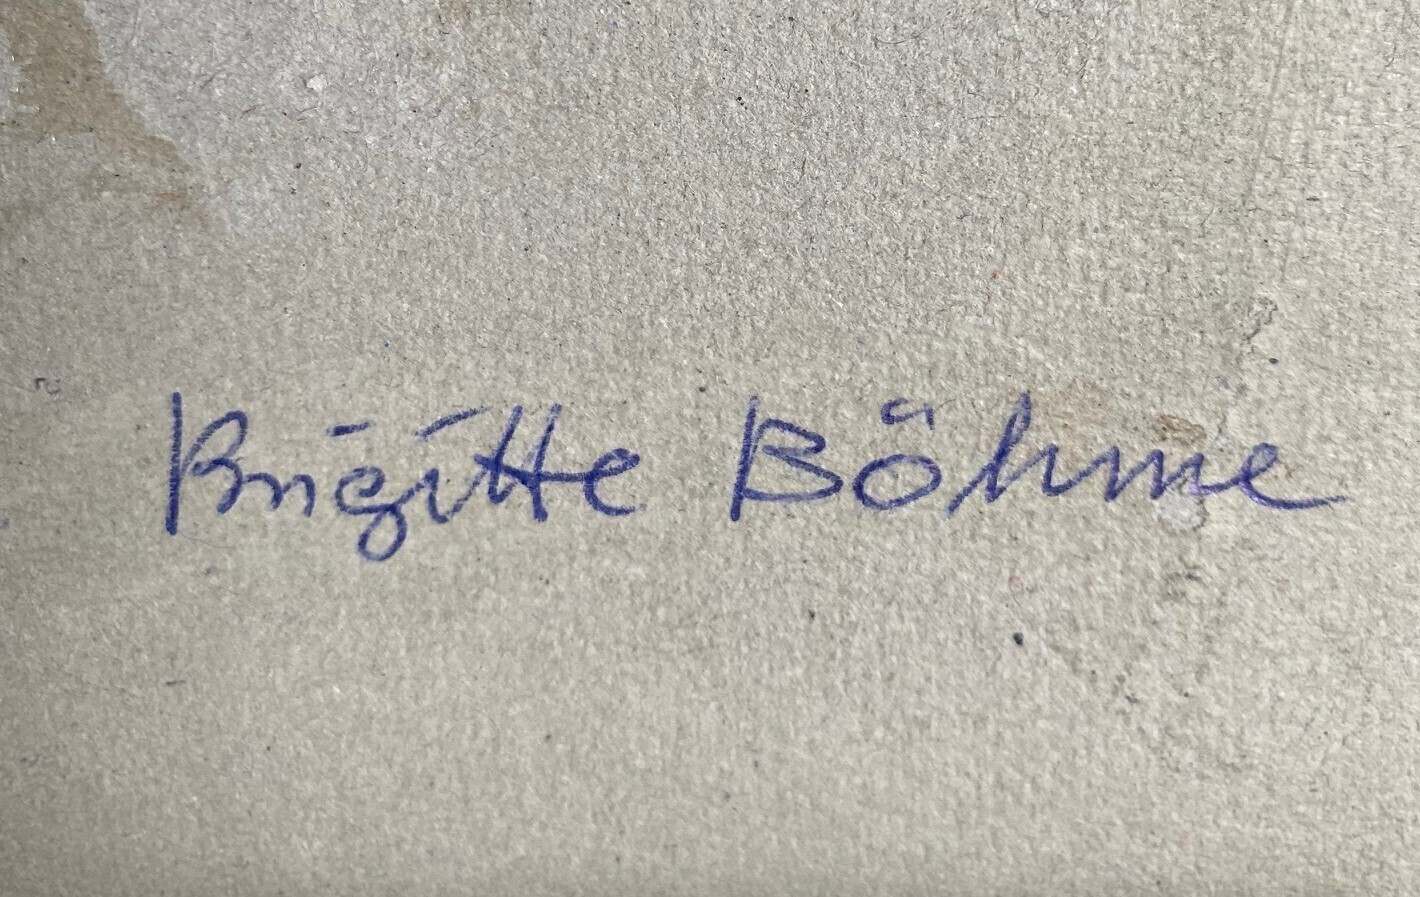 Brigitte Böhme